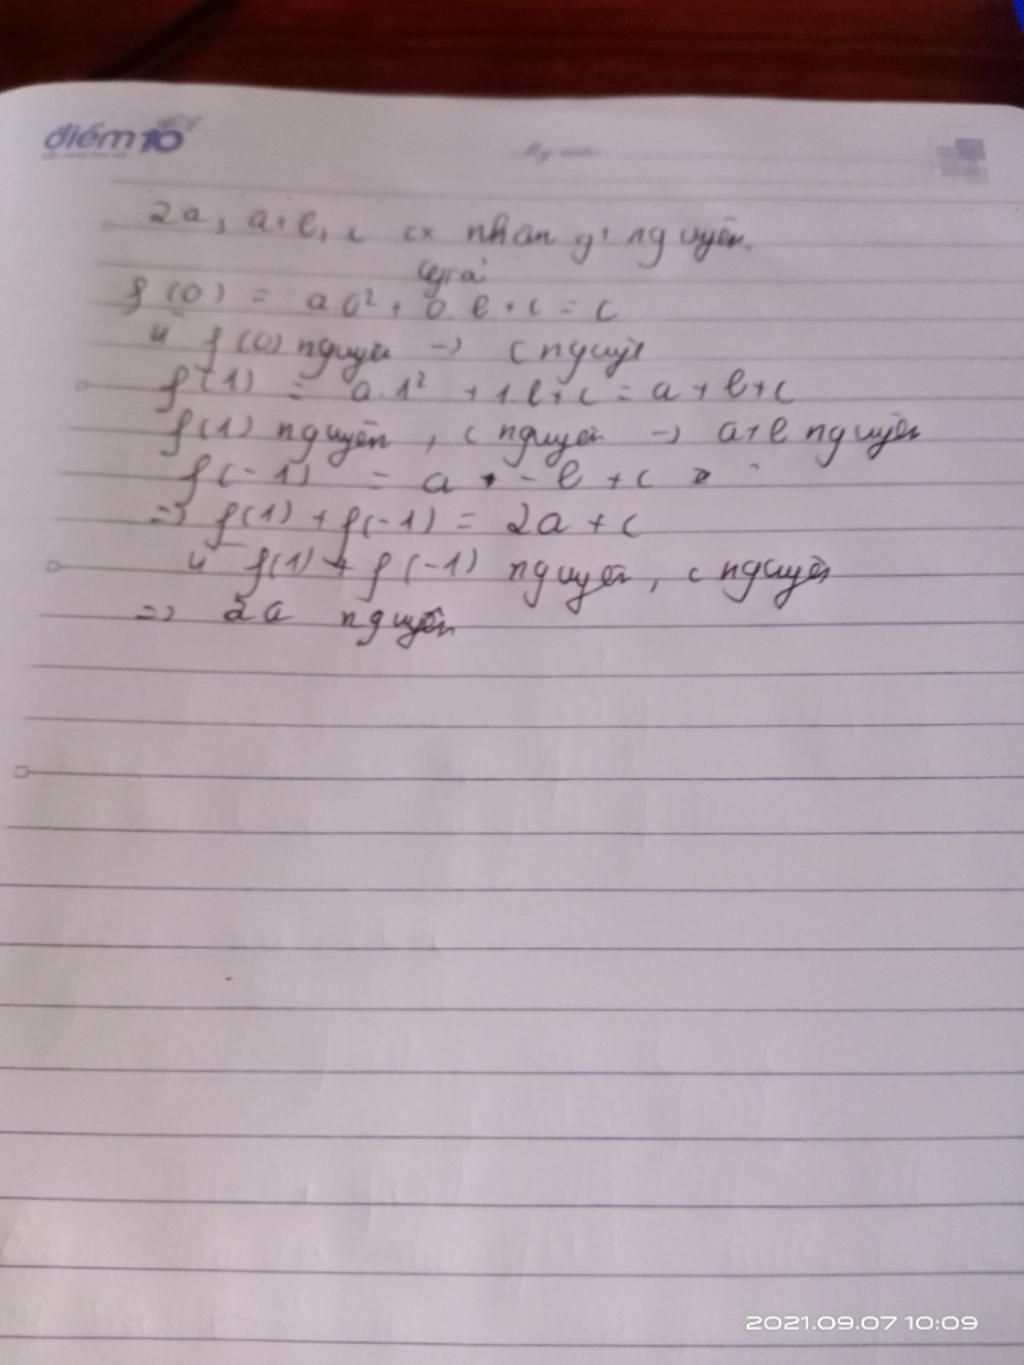 điểm10
2a, a+b, c nhân gt nguyên
Giả
f(0) = a.0² + 0.b + c = c
Vì f(0) nguyên → c nguyê
f(1) = a.1² + 1.b + c = a + b + c
f(1) nguyên, c nguyên → a+b nguyên
f(-1) = a - b + c
=> f(1) + f(-1) = 2a + c
Vì f(1) + f(-1) nguyên, c nguyên
=> 2a nguyên
2021.09.07 10:09